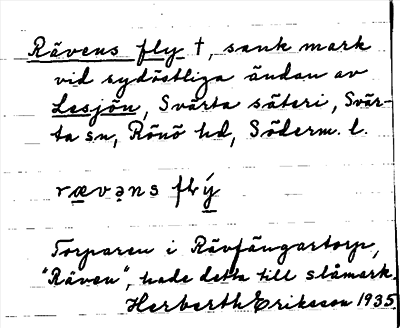 Rävens fly †, sank mark
vid sydöstliga ändan av
Lesjön, Svärta säteri, Svär-
ta sn, Rönö hd, Söderm. l.
rævəns flý
Torparen i Rävfängartorp,
"Räven", hade detta till slåmark.
Herberth Eriksson 1935.